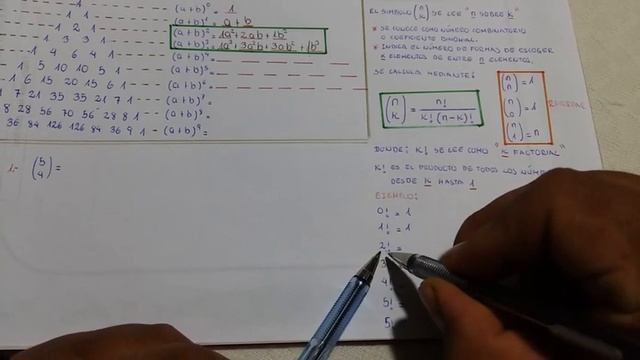 1 1 ----- (a+b)⁰ = 1
1 2 1 ---- (a+b)¹ = a + b
1 3 3 1 --- (a+b)² = 1a² + 2ab + 1b²
1 4 6 4 1 --- (a+b)³ = 1a³ + 3a²b + 3ab² + 1b³
1 5 10 10 5 1 --- (a+b)⁴ =
1 6 15 20 15 6 1 --- (a+b)⁵ =
1 7 21 35 35 21 7 1 --- (a+b)⁶ =
8 28 56 70 56 28 8 1 --- (a+b)⁷ =
36 84 126 126 84 36 9 1 -- (a+b)⁸ =
(a+b)⁹ =
1.- (5 4) =
EL SIMBOLO (n K) SE LEE "n SOBRE K"
* SE CONOCE COMO NÚMERO COMBINATORIO
O COEFICIENTE BINOMIAL.
* INDICA EL NÚMERO DE FORMAS DE ESCOGER
K ELEMENTOS DE ENTRE n ELEMENTOS.
SE CALCULA MEDIANTE:
(n K) = n! / K! (n-K)!
(n n) = 1
(n 0) = 1
(n 1) = n
DONDE: K! SE LEE COMO "K FACTORIAL"
K! ES EL PRODUCTO DE TODOS LOS NÚM
DESDE K HASTA 1
EJEMPLO:
0! = 1
1! = 1
2! =
3
4!
5! =
5